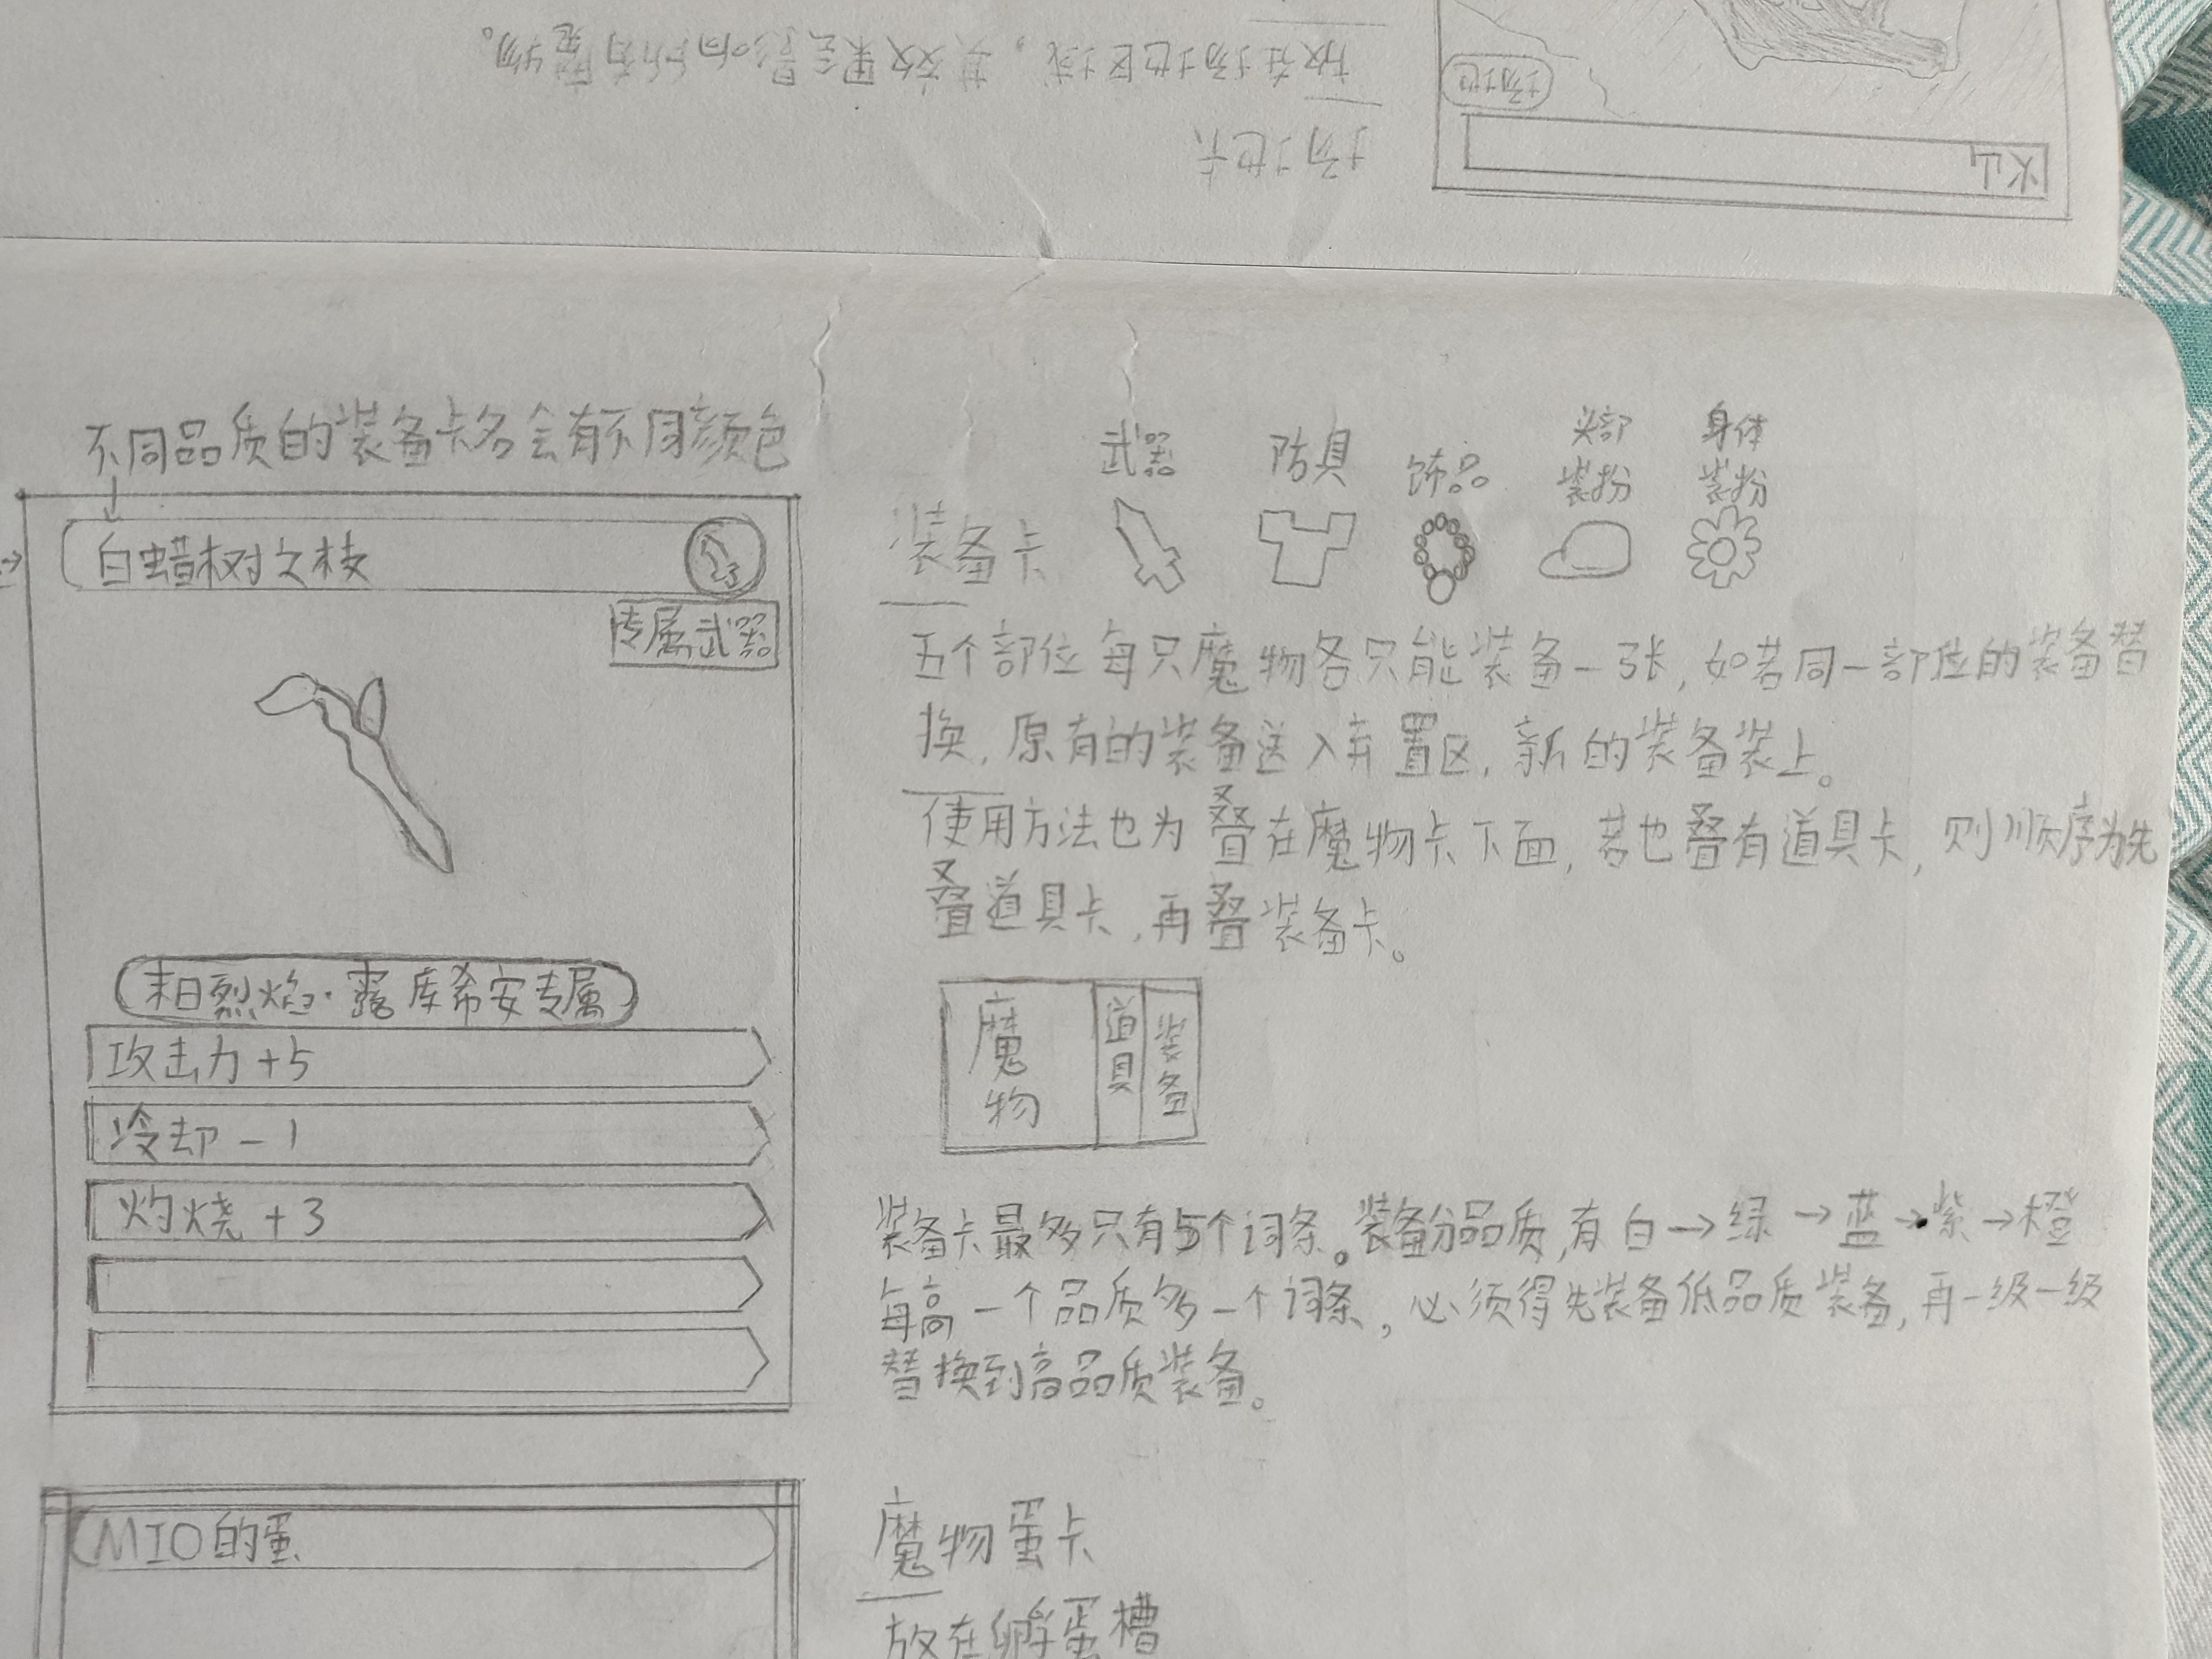 火山
场地
场地卡
放在场地区域，其效果会影响所有魔物。
不同品质的装备卡名会有不同颜色
白蜡树之枝
专属武器
末日烈焰·露库希安专属
攻击力+5
冷却-1
灼烧+3
装备卡
武器
防具
饰品
头部
装扮
身体
装扮
五个部位每只魔物各只能装备一张,如若同一部位的装备替
换,原有的装备送入弃置区,新的装备装上。
使用方法也为叠在魔物卡下面,若也叠有道具卡,则顺序为先
叠道具卡,再叠装备卡。
魔物
道具
装备
装备卡最多只有5个词条。装备分品质,有白→绿→蓝→紫→橙
每高一个品质多一个词条,必须得先装备低品质装备,再一级一级
替换到高品质装备。
MIO的蛋
魔物蛋卡
放在孵蛋槽